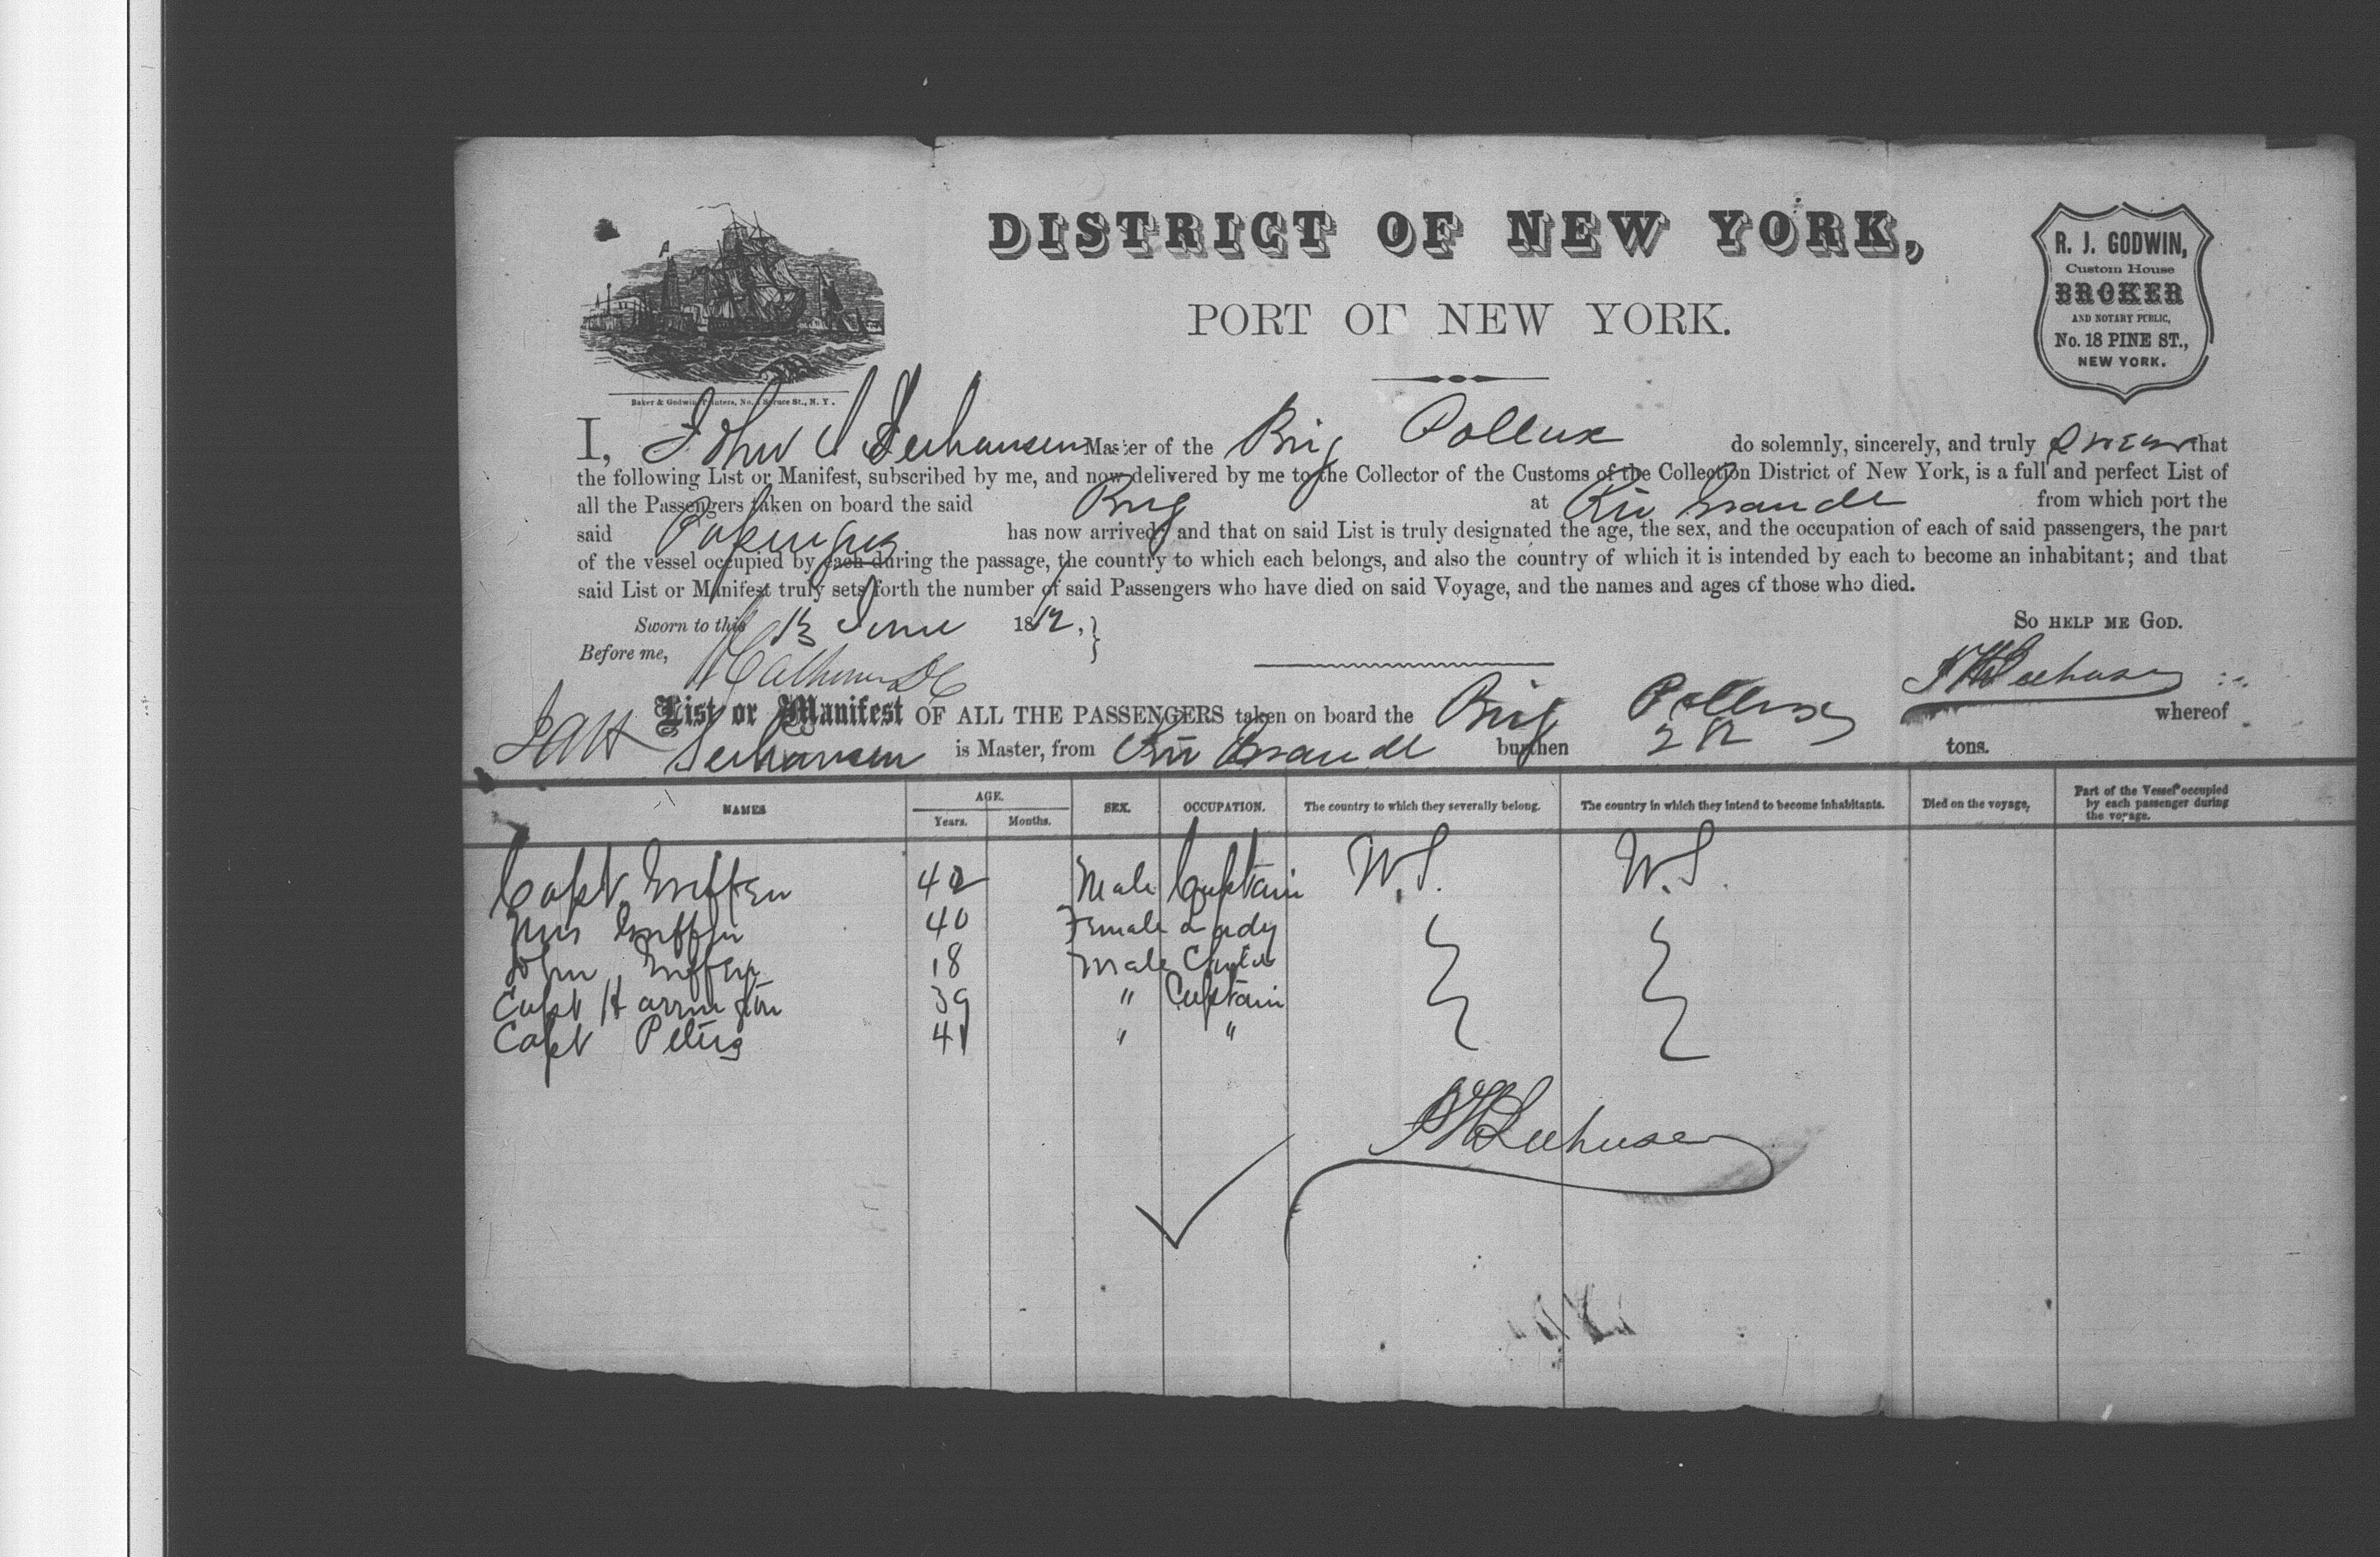 DISTRICT OF NEW YORK,
PORT OF NEW YORK.
R. J. GODWIN,
Custom House
BROKER
AND NOTARY PUBLIC,
No. 18 PINE ST.,
NEW YORK.
Baker & Godwin, Printers, No. 1 Spruce St., N. Y.
I, John Master of the Brig Pollux do solemnly, sincerely, and truly swear that
the following List or Manifest, subscribed by me, and now delivered by me to the Collector of the Customs of the Collection District of New York, is a full and perfect List of
all the Passengers taken on board the said Brig at Rio Grande from which port the
said has now arrived; and that on said List is truly designated the age, the sex, and the occupation of each of said passengers, the part
of the vessel occupied by each during the passage, the country to which each belongs, and also the country of which it is intended by each to become an inhabitant; and that
said List or Manifest truly sets forth the number of said Passengers who have died on said Voyage, and the names and ages of those who died.
Sworn to this 13 June 18 So HELP ME GOD.
Before me,
List or Manifest OF ALL THE PASSENGERS taken on board the Brig Pollux whereof
is Master, from Rio Grande burthen tons.
NAMES AGE. Years. Months. SEX. OCCUPATION. The country to which they severally belong. The country in which they intend to become inhabitants. Died on the voyage, Part of the Vessel occupied by each passenger during the voyage.
Capt Griffen 42 Male Captain
Mrs Griffin 40 Female Lady
John Griffen 18 Male
Capt Harrington 39 " Captain
Capt Peters 41 " "